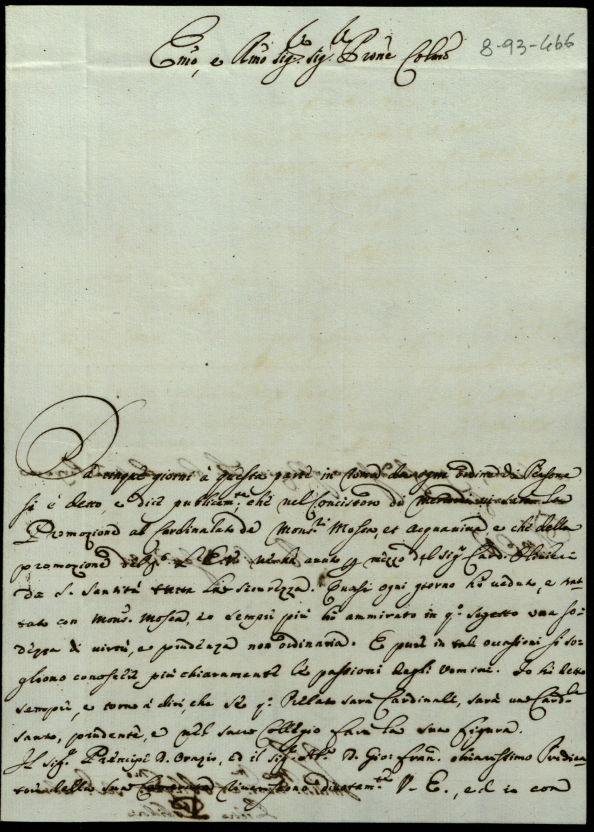 Emo, e Rmo Sig.r Sig.r Prone Colmo
8-93-466
Da cinque giorni à questa parte in Roma da ogni ordine di Persone
si è detto, e dice publicam.te che nel Concistoro di
Promozione al Cardinalato de Mons.ri Mosca, et Acquaviva e che della
promozione del p.o V. Em. n'habbia avuto p mezzo del Sig. Card. Olivieri
da S. Santità tutta la sicurezza. Quasi ogni giorno hò veduto, e trat-
tato con Mons. Mosca, et sempre più hò ammirato in q.o sogetto una so-
dezza di virtù, e prudenza non ordinaria. E pure in tali occasioni si so-
gliono conoscere più chiaramente le passioni degli Uomini. Io hò detto
sempre, e torno à dire, che se q.o Prelato sarà Cardinale, sarà un Card.le
santo, prudente, e nel sacro Collegio farà la sua figura.
Il Sig. Principe D. Orazio, ed il Sig. Ab. D. Gio: Fran. chiarissimo
della sua riveriscono divotam.te V. E., ed io con